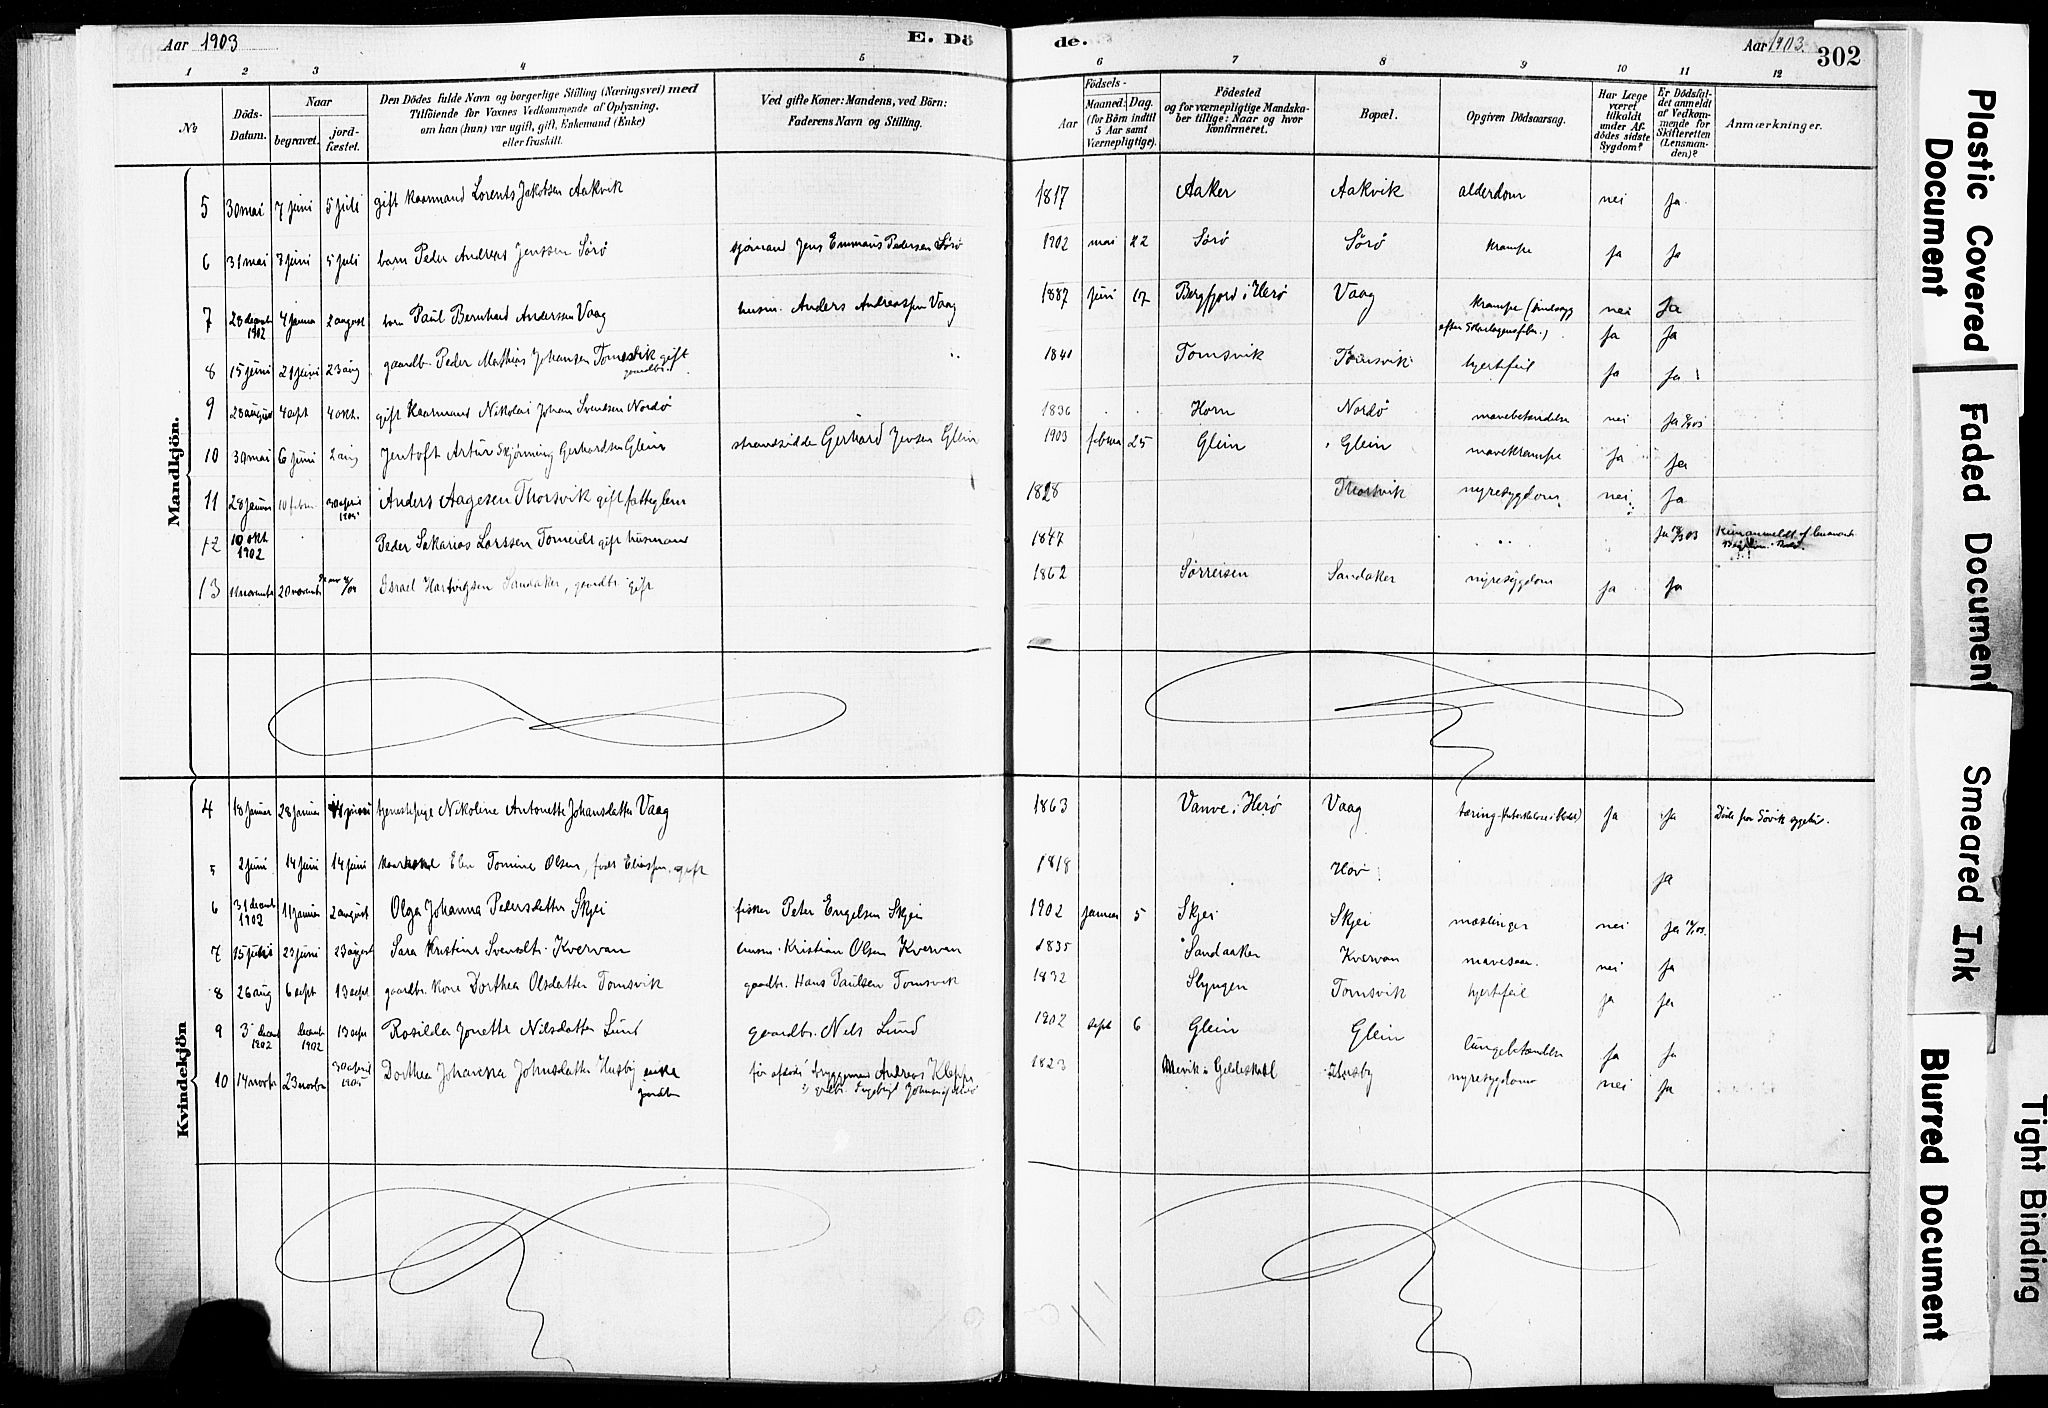 Aar 1903
E. Dö
de.
Aar 1903.
302
1 2 3 4 5 6 7 8 9 10 11 12
No
Döds-Datum.
Naar
begravet.
jord-fæstet.
Den Dödes fulde Navn og borgerlige Stilling (Næringsvei) med
Tilföiende for Voxnes Vedkommende af Oplysning,
om han (hun) var ugift, gift, Enkemand (Enke)
eller fraskilt.
Ved gifte Koner: Mandens, ved Börn:
Faderens Navn og Stilling.
Aar
Födsels-
Maaned: Dag.
(for Börn indtil
5 Aar samt
Værnepligtige).
Födested
og for værnepligtige Mandska-
ber tillige: Naar og hvor
konfirmeret.
Bopæl.
Opgiven Dödsaarsag.
Har Læge
været
tilkaldt
under Af-
dödes sidste
Sygdom?
Er Dödsfal-
det anmeldt
af Vedkom-
mende for
Skifteretten
(Lensman-
den)?
Anmærkninger.
Mandkjön.
5 30 mai 7 juni 5 juli gift kaarmand Lorents Jakobsen Aakvik 1817 Aaker Aakvik alderdom nei ja
6 31 mai 7 juni 5 juli barn Peder Andreas Jenssen Sörö sjömand Jens Emmaus Pedersen Sörö 1902 mai 22 Sörö Sörö krampe ja ja
7 23 decemb 1902 4 janua 2 august barn Paul Bernhard Anderssen Vaag husm. Anders Andreassen Vaag 1887 juni 17 Bergfjord i Herö Vaag krampe nei ja
ja ja
8 15 juni 21 juni 23 aug gaardbr. Peder Mathias Johansen Tomsvik gift gaardbr. 1841 Tomsvik Tomsvik hjertefeil ja ja
9 23 august 4 sept 4 okt. gift kaarmand Nikolai Johan Svendsen Nordö 1836 Horn Nordö mavebetændelse nei ja
10 30 mai 6 juni 2 aug Jentoft Artur Skjörning Gerhardsen Glein strandsidder Gerhard Jensen Glein 1903 februa 25 Glein Glein mavekrampe ja ja
11 28 januar 10 febru 30 april 1905 Anders Aagesen Thorsvik gift fattiglem 1828 Thorsvik nyresygdom nei ja
12 10 okt 1902 Peder Sakarias Larssen Tomeidet gift husmand 1847 ja
13 11 novemb 20 novemb Israel Hartvigsen Sandaker, gaardbr. gift 1862 Sörreisen Sandaker nyresygdom ja ja
Kvindekjön
4 18 januar 28 januar 14 juni tjenestepige Nikoline Antonette Johansdatter Vaag 1863 Vanve i Herö Vaag tæring ja ja Döde paa Sövik sygehus.
5 2 juni 14 juni 14 juni Elen Tomine Olsen, född Eliassen. gift 1818 Hov ja
6 31 decemb 1902 11 januar 2 august Olga Johanna Pedersdatter Skjei fisker Peter Engelsen Skjei 1902 januar 5 Skjei Skjei mæslinger nei ja
7 15 juni 23 juni 23 august Sara Kristine Svensdt. Kvervan husm. Kristian Olsen Kvervan 1835 Sandaaker Kvervan mavesaar. nei ja
8 26 aug 6 sept 13 sept gaardbr. kone Dorthea Olsdatter Tomsvik gaardbr. Hans Paulsen Tomsvik 1832 Slyngen Tomsvik hjertefeil ja ja
9 3 decemb 1902 decemb 1902 13 sept Rosilda Jonette Nilsdatter Lund gaardbr. Nils Lund 1902 sept 6 Glein Glein lungebetændelse ja ja
10 14 novbr 23 novbr 30 april 1905 Dorthea Johanna Johnsdatter Husby enke gaardbr. för afdöde Andreas Klepp 1823 Gildeskaal Husby nyresygdom nei ja
Plastic Covered Document
Faded Document
Smeared Ink
Blurred Document
Tight Binding